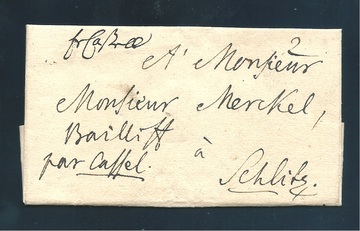 A' Monsieur
Monsieur Merckel,
Bailliff
par Cassel.
à
Schlitz.